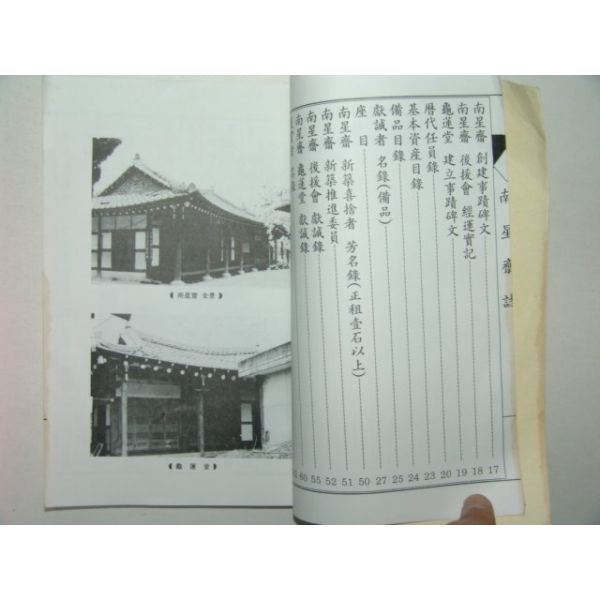 南星齋誌
南星齋 創建事蹟碑文 17
南星齋 後援會 經運實記 18
龜蓮堂 建立事蹟碑文 19
曆代任員錄 20
基本資産目錄 23
備品目錄 24
獻誠者 名錄(備品) 25
座目 27
南星齋 新築喜捨者 芳名錄(正租壹石以上) 50
南星齋 新築推進委員 51
南星齋 後援會 獻誠錄 52
南星齋 龜蓮堂 獻誠錄 55
60
《南星齋 全景》
《龜蓮堂》